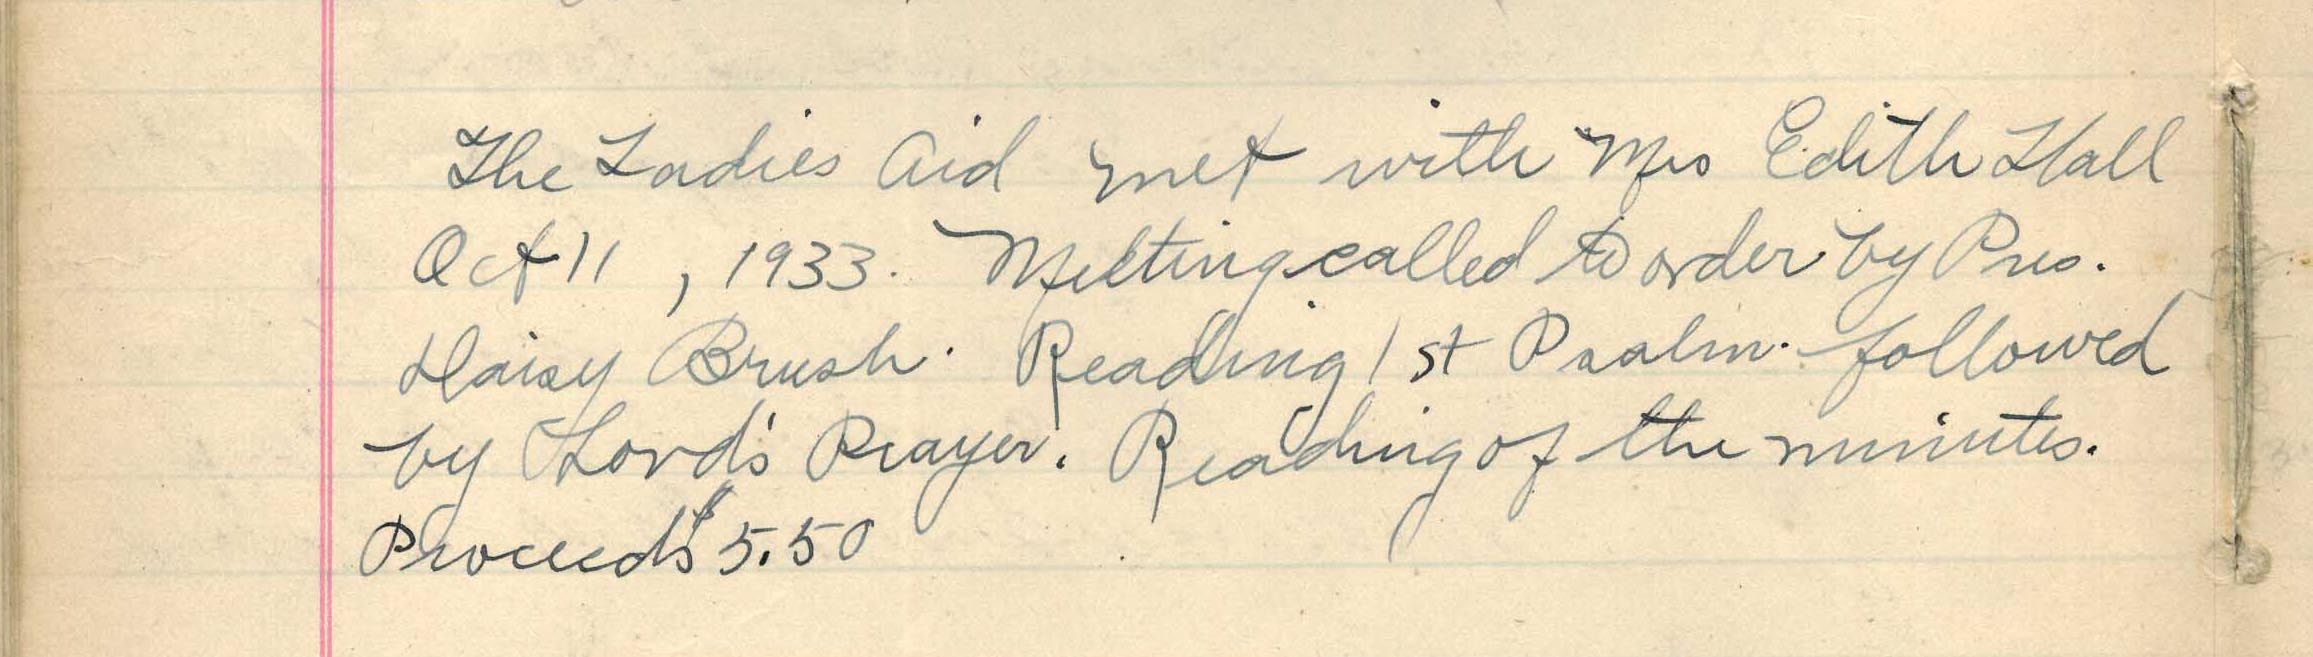 The Ladies Aid met with Mrs Edith Hall
Oct 11, 1933. Meeting called to order by Pres.
Daisy Brush. Reading 1st Psalm. followed
by Lord's Prayer. Reading of the minutes.
Proceeds $5.50